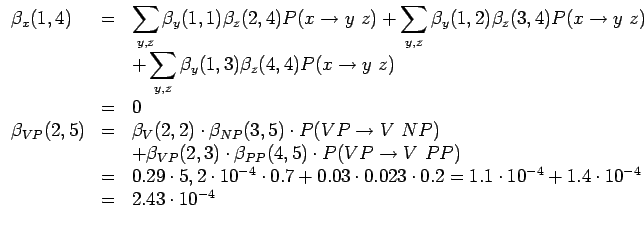 βₓ(1,4) = ∑_{y,z} β_y(1,1)β_z(2,4)P(x → y z) + ∑_{y,z} β_y(1,2)β_z(3,4)P(x → y z)
+ ∑_{y,z} β_y(1,3)β_z(4,4)P(x → y z)
= 0
β_{VP}(2,5) = β_V(2,2) · β_{NP}(3,5) · P(VP → V NP)
+β_{VP}(2,3) · β_{PP}(4,5) · P(VP → V PP)
= 0.29 · 5,2 · 10^{−4} · 0.7 + 0.03 · 0.023 · 0.2 = 1.1 · 10^{−4} + 1.4 · 10^{−4}
= 2.43 · 10^{−4}